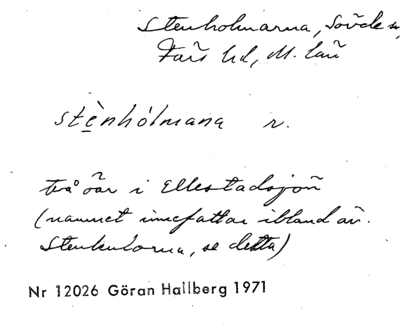 Stenholmarna, Sövde sn,
Färs hd, M. län
stè̱nhólmana n.
två öar i Ellestadsjön
(namnet innefattar ibland äv.
Stenkulorna, se detta)
Nr 12026 Göran Hallberg 1971